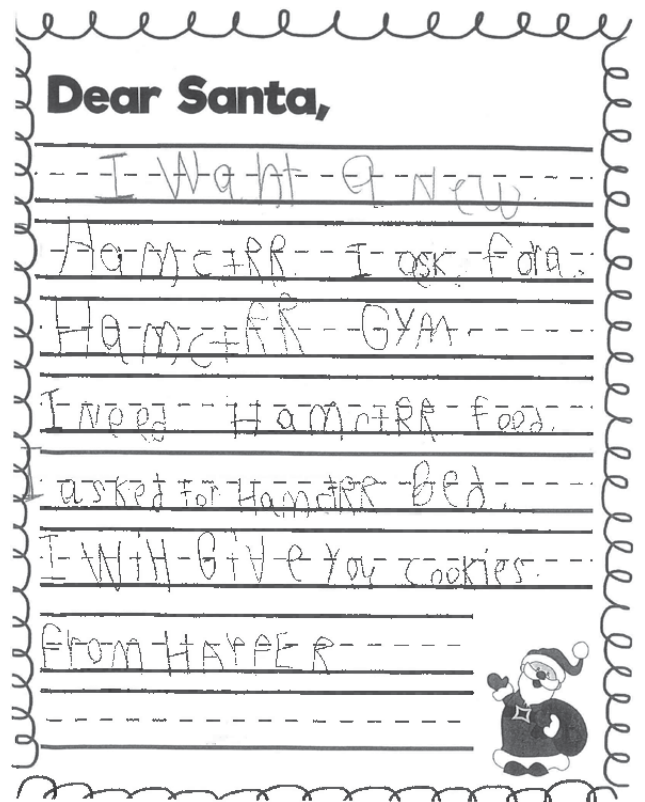 Dear Santa,
I Want a New
HamctRR. I ask fora.
HamctRR GYM.
I Need HamctRR food.
I asked for HamctRR Bed.
I Will Give You cookies.
from HARPER